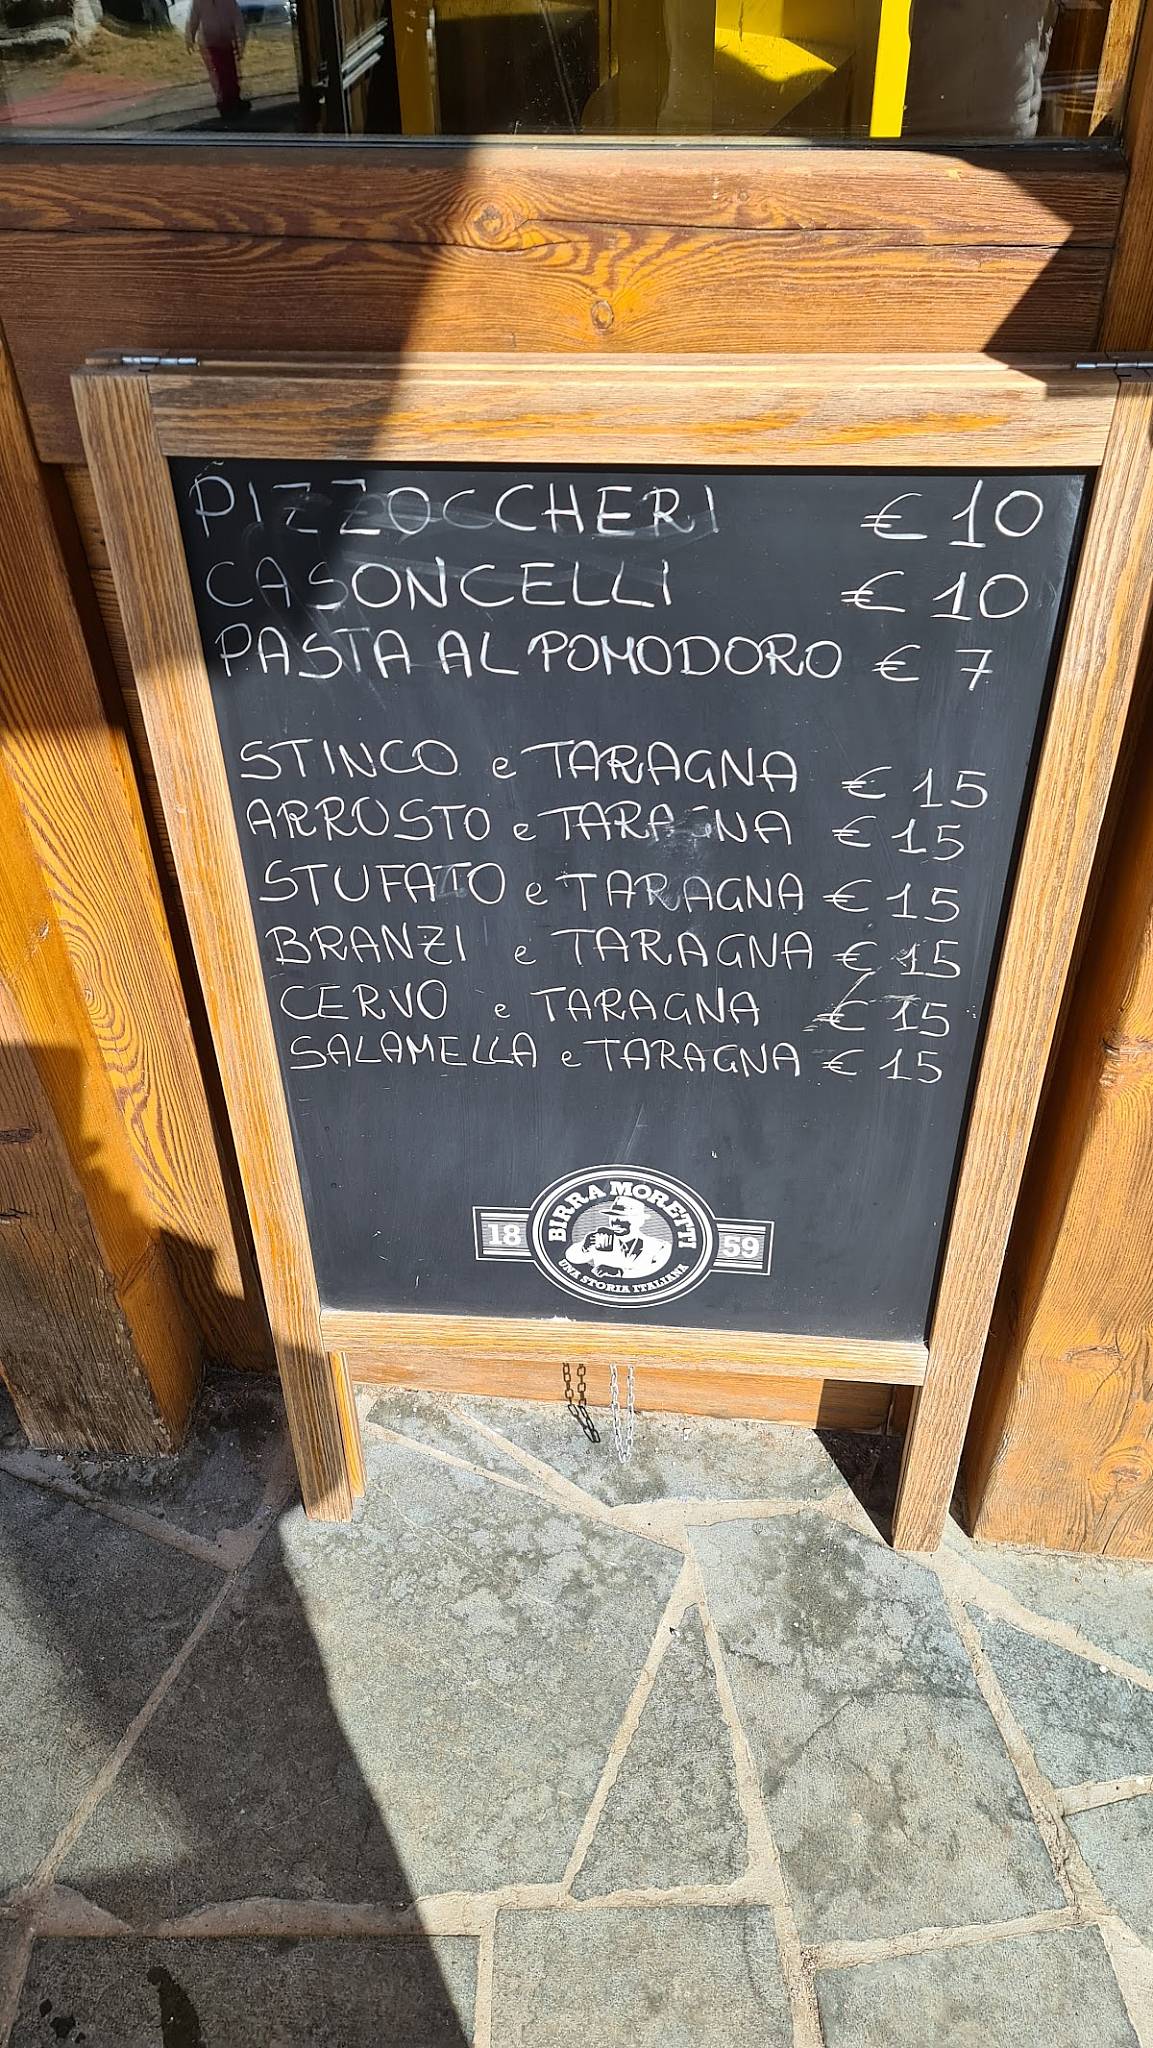 PIZZOCCHERI € 10
CASONCELLI € 10
PASTA AL POMODORO € 7
STINCO e TARAGNA € 15
ARROSTO e TARAGNA € 15
STUFATO e TARAGNA € 15
BRANZI e TARAGNA € 15
CERVO e TARAGNA € 15
SALAMELLA e TARAGNA € 15
BIRRA MORETTI
18 59
UNA STORIA ITALIANA